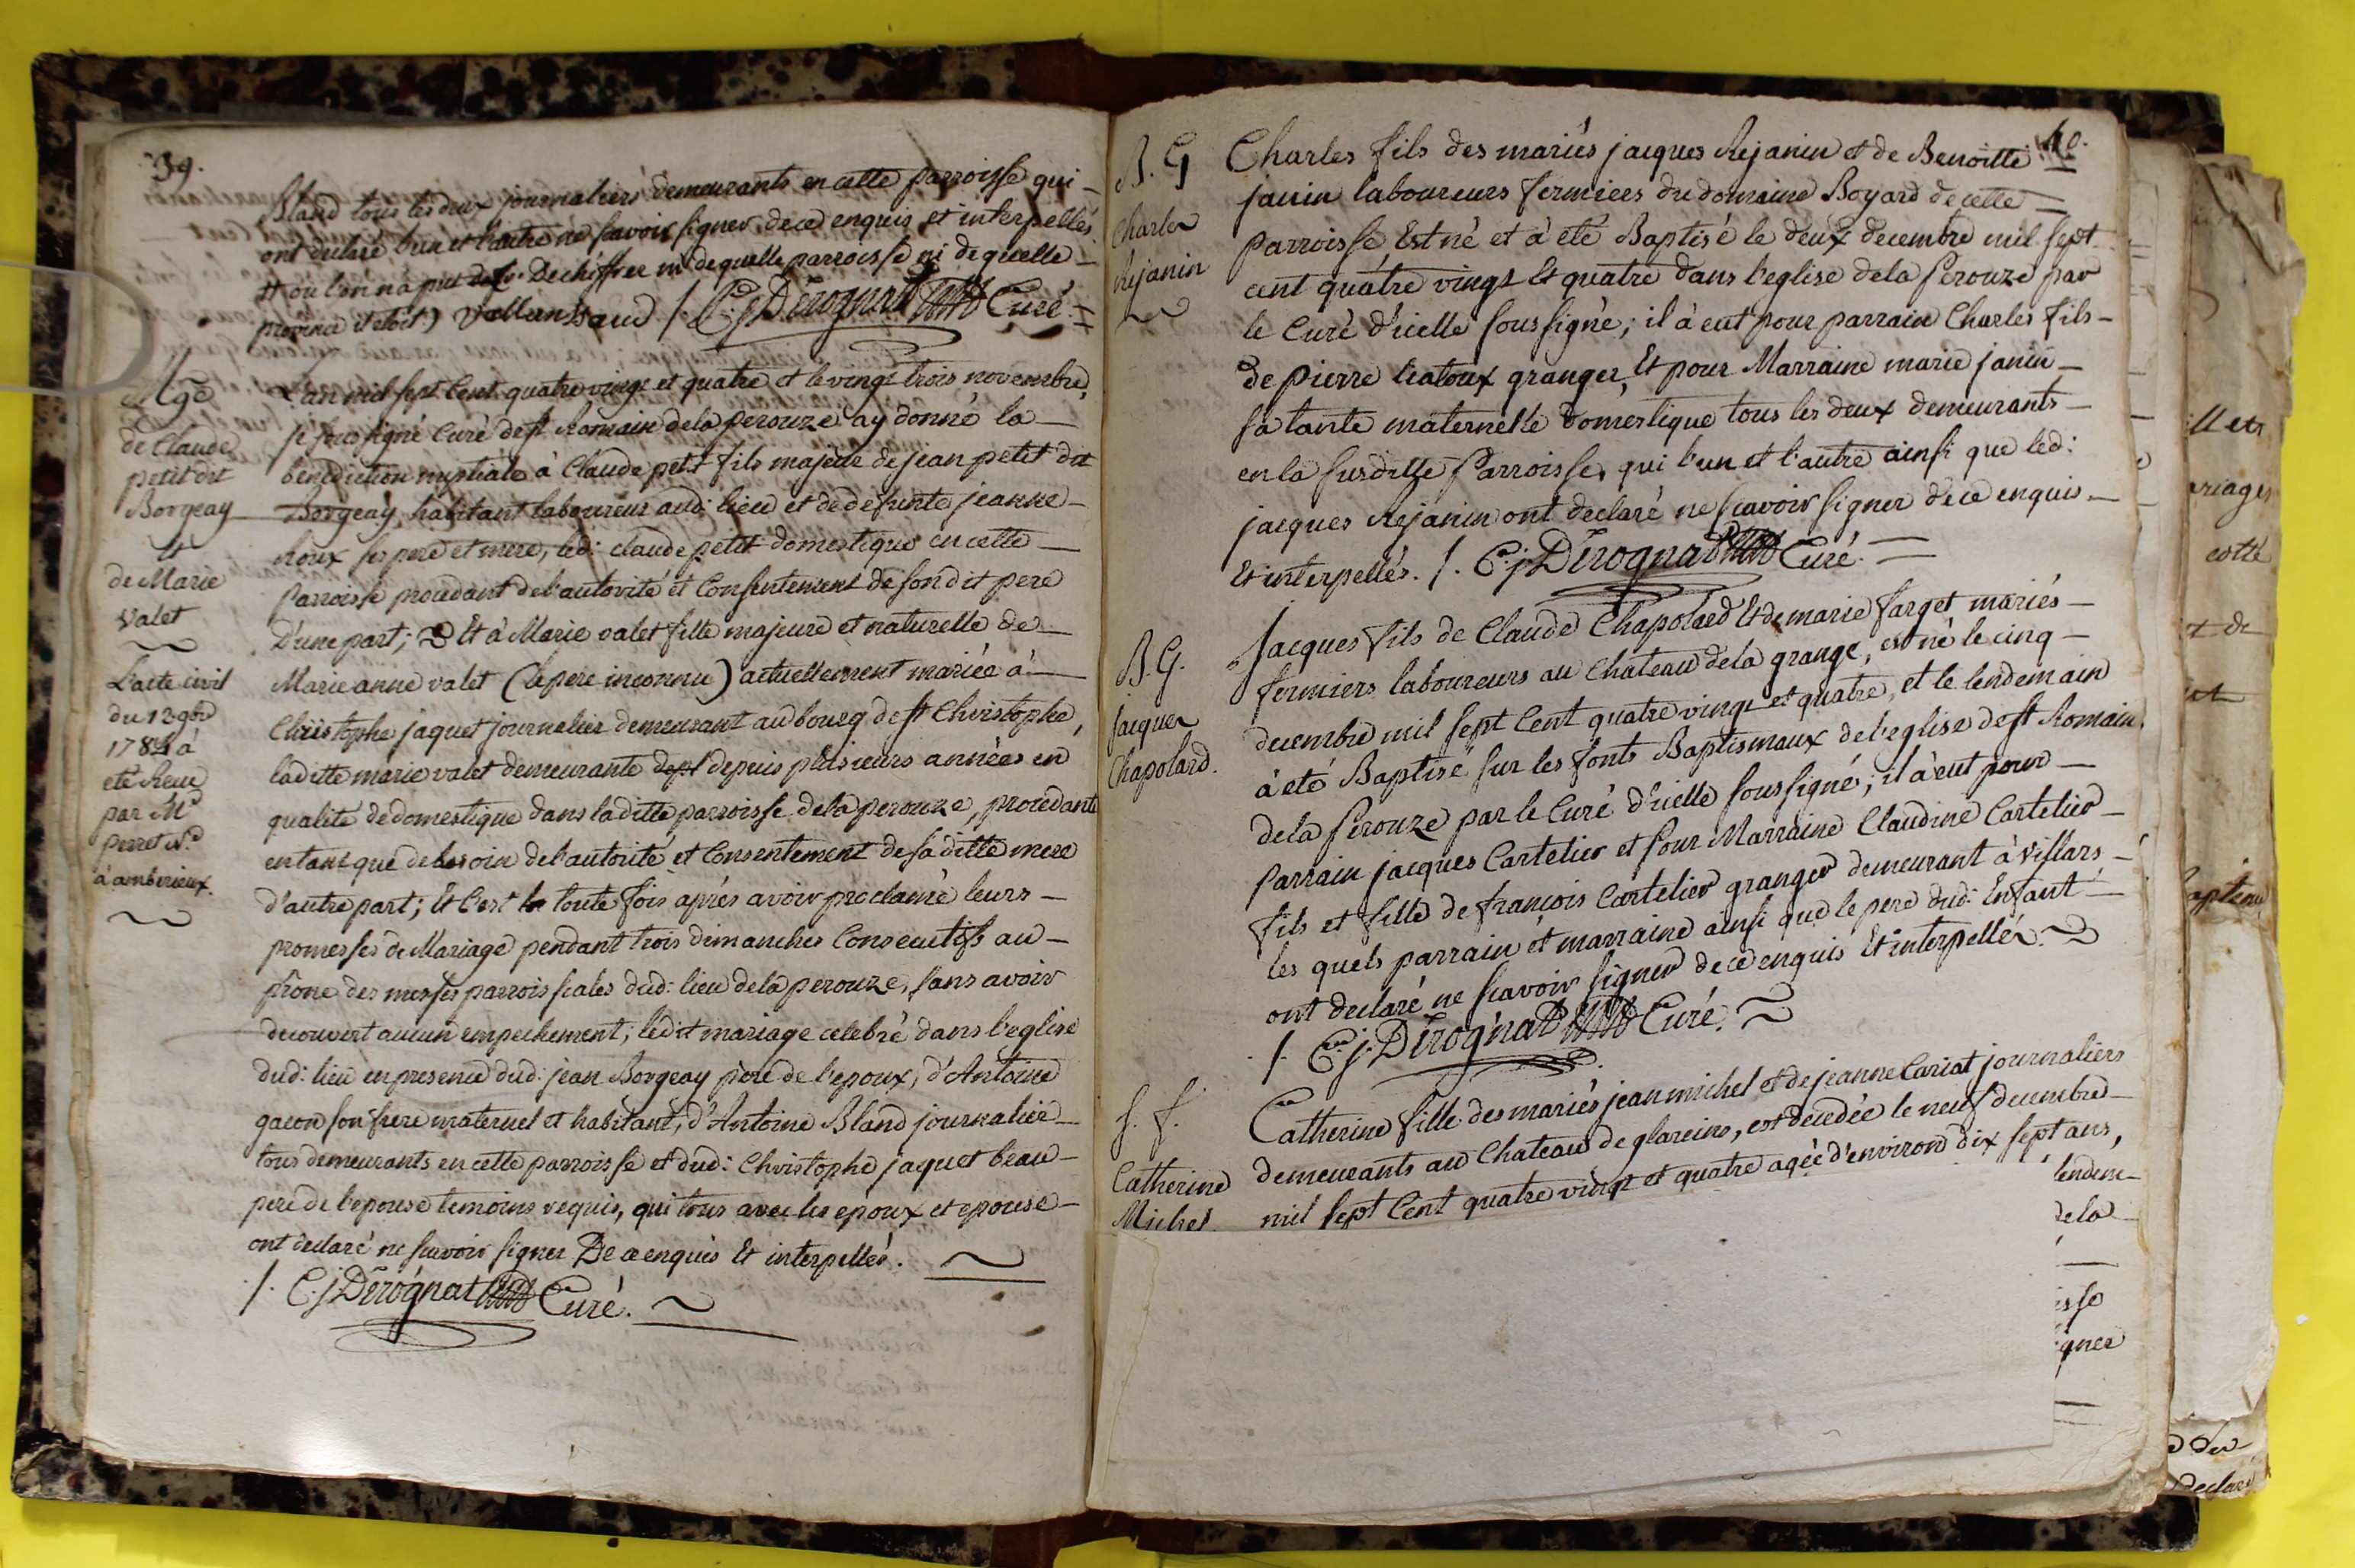 39.
Bland tous les deux journaliers demeurants en cette parroisse qui
ont declaré l'un et l'autre ne scavoir signer de ce enquis et interpellés
ou l'on n'a put Dechiffrer ni de quelle parroisse ni de quelle
province il etoit) /. C. j. Dérognat Curé.
Mge
de Claude
petit dit
Borgeay
et
de Marie
Valet
L'acte civil
du 12 9bre
1784 à
eté Reçu
par Me
perret Nre
à amberieux.
L'an mil sept Cent quatre vingt et quatre et le vingt trois novembre,
je soussigné Curé de st Romain dela perouze ay donné la
bénédiction nuptiale à Claude petit fils majeur de jean petit dit
Borgeay, habitant laboureur aud: lieu et de defunte jeanne
Roux ses pere et mere, led: claude petit domestique en cette
Parroisse procedant de l'autorité et Consentement de son dit pere
D'une part; Et à Marie valet fille majeure et naturelle de
Marie anne valet (le pere inconnu) actuellement mariée à
Christophe jaquet journalier demeurant au bourg de st Christophe,
laditte marie valet demeurante depuis plusieurs années en
qualité de domestique dans laditte parroisse dela perouze, procedante
en tant que de besoin de l'autorité et Consentement de sa ditte mere
d'autre part; Et C'est toute fois aprés avoir proclamé leurs
promesses de Mariage pendant trois dimanches Consecutifs au
prône des messes parroissiales dud: lieu dela perouze, sans avoir
decouvert aucun empechement; ledit mariage celebré dans l'eglise
dud: lieu en presence dud: jean Borgeay pere de l'epoux, d'Antoine
gacon son frere maternel et habitant, d'Antoine Bland journalier
tous demeurants en cette parroisse et dud: Christophe jaquet beau
pere de l'epouse temoins requis, qui tous avec les epoux et epouse
ont declaré ne scavoir signer De ce enquis Et interpellés.
/. C. j. Dérognat Curé.
40.
B. G
Charles
Rejanin
Charles fils des mariés jacques Rejanin et de Benoitte
janin laboureurs fermiers du domaine Boyard de cette
parroisse, Est né et à eté Baptisé le deux decembre mil sept
cent quatre vingt Et quatre dans l'eglise dela Perouze par
le Curé d'icelle soussigné; il à eut pour parrain Charles fils
de pierre granger, Et pour Marraine marie janin
sa tante maternelle domestique tous les deux demeurants
en la susditte Parroisse, qui l'un et l'autre ainsi que led:
jacques Rejanin ont declaré ne scavoir signer de ce enquis
Et interpellés. /. C. j. Dérognat Curé.
B. G.
jacques
Chapolard.
Jacques fils de Claude Chapolard Et de marie farget mariés
fermiers laboureurs au Chateau dela grange, est né le cinq
decembre mil sept Cent quatre vingt et quatre, et le lendemain
à eté Baptisé sur les fonts Baptismaux de l'eglise de st Romain
dela Perouze par le Curé d'icelle soussigné; il à eut pour
Parrain jacques Cartelier et Pour Marraine Claudine Cartelier
fils et fille de françois Cartelier granger demeurant à villars
les quels parrain et marraine ainsi que le pere dud: Enfant
ont declaré ne scavoir signer de ce enquis Et interpellés.
/. C. j. Dérognat Curé.
S. f.
Catherine
Michel
Catherine fille des mariés jean michel et de jeanne Cariat journaliers
demeurants au Chateau de glareins, est decedée le neuf decembre
mil sept Cent quatre vingt et quatre agée d'environ dix sept ans,